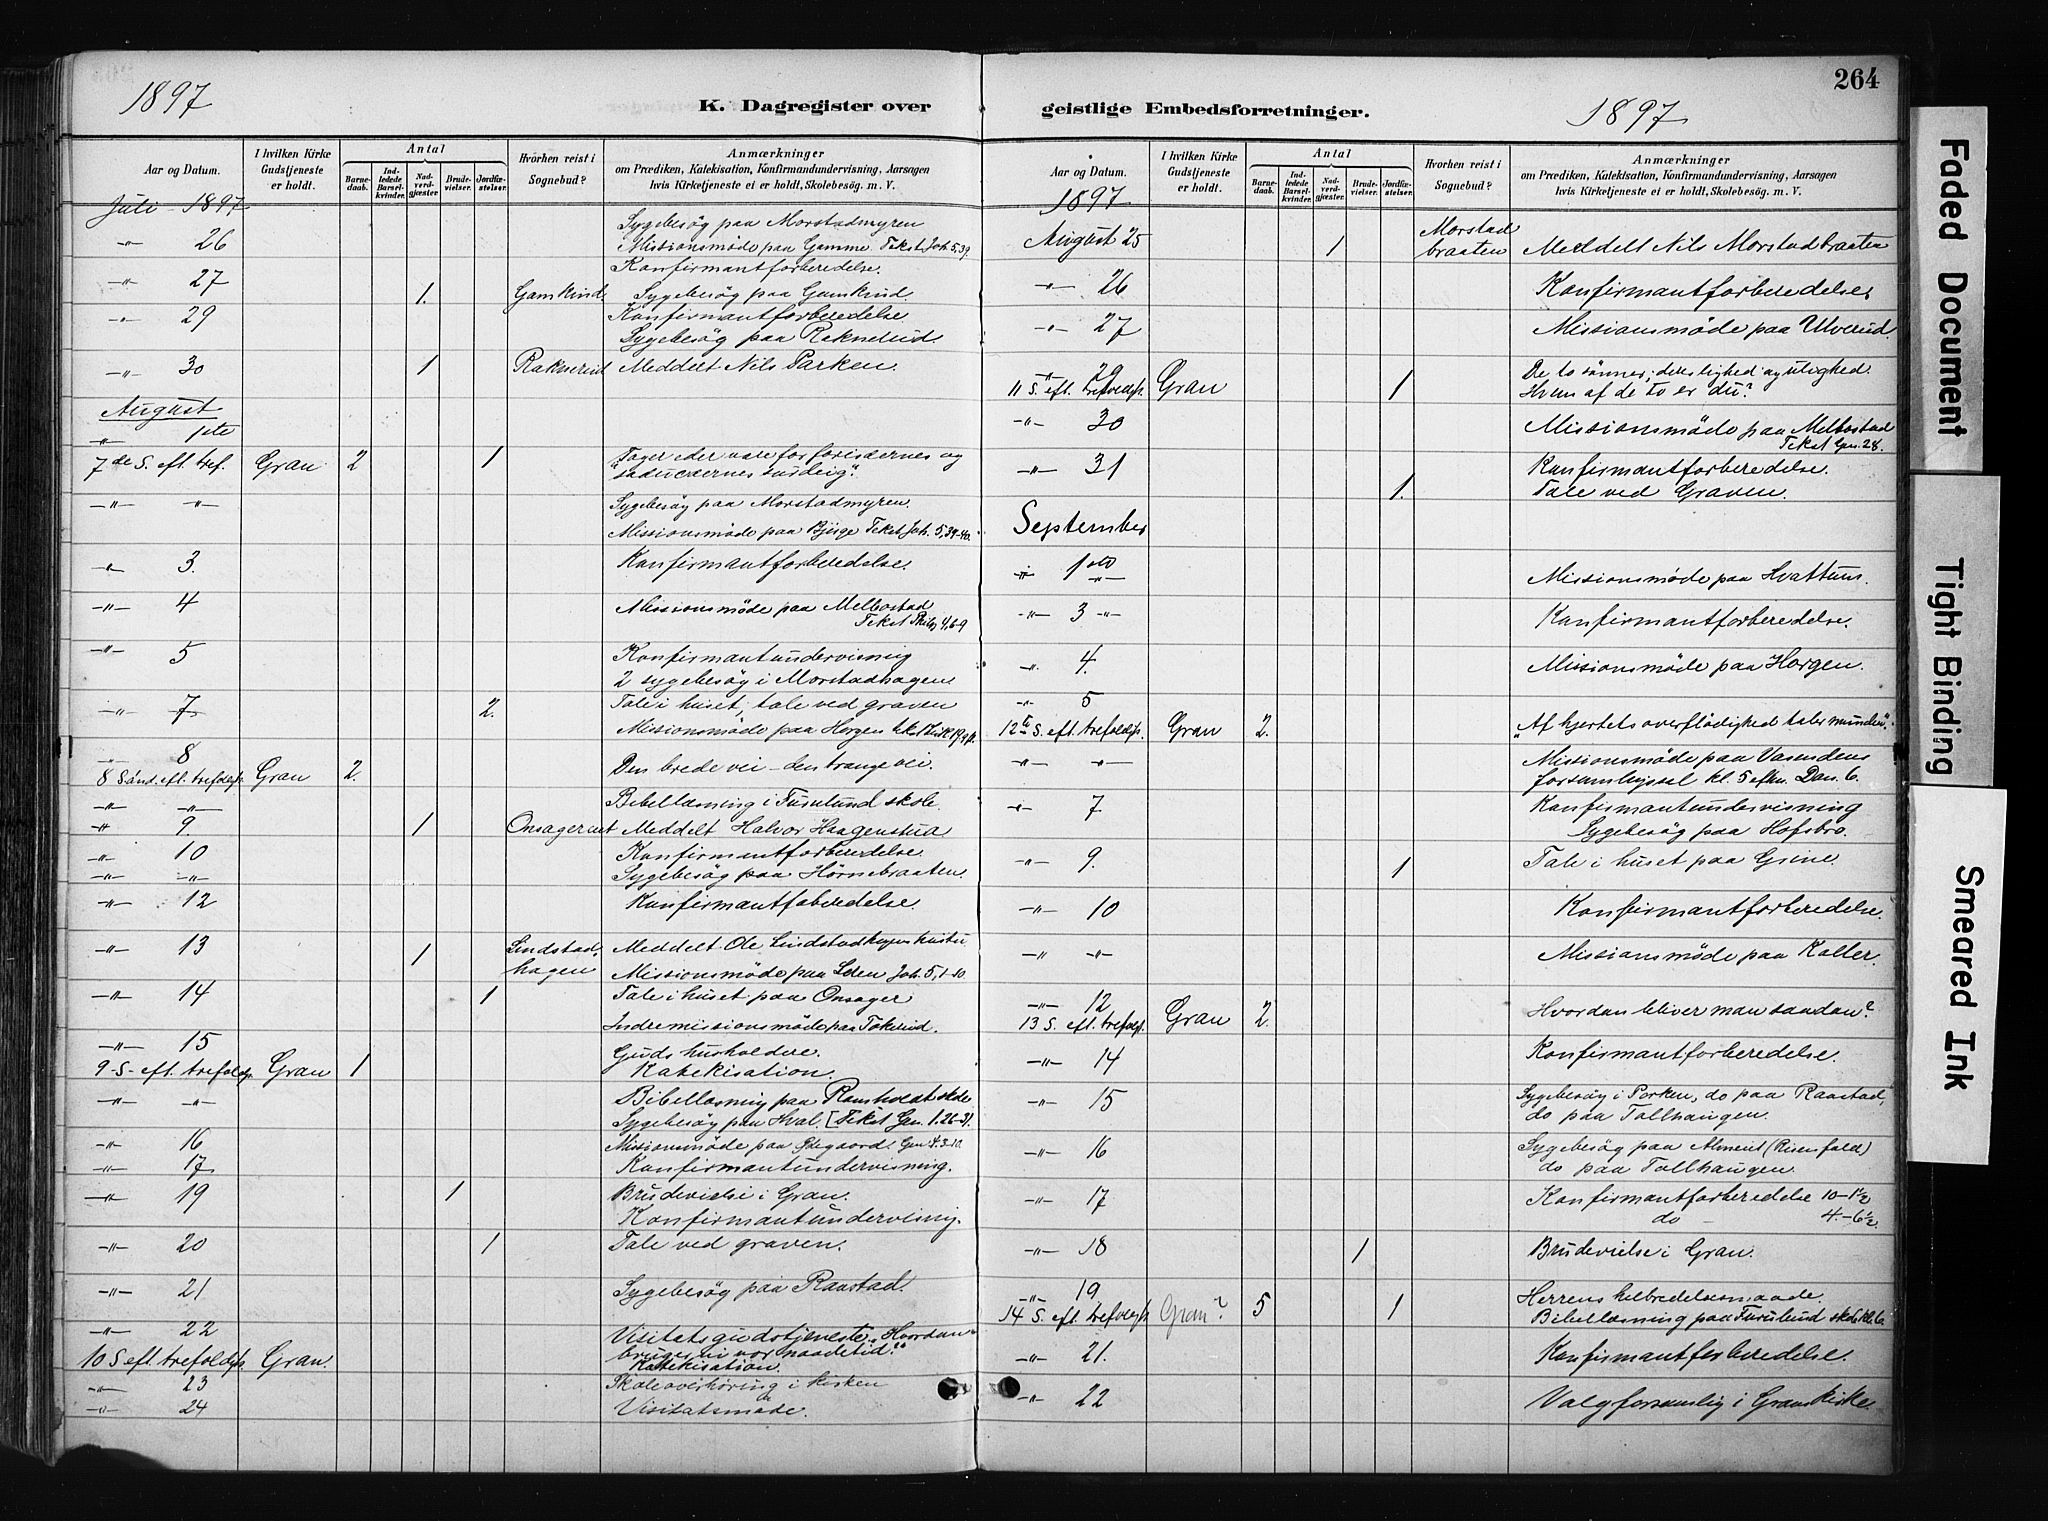 264
1897
K. Dagregister over
geistlige Embedsforretninger.
1897
Aar og Datum.
I hvilken Kirke Gudstjeneste er holdt.
Antal
Barne-daab.
Ind-ledede Barsel-kvinder.
Nad-verd-gjæster.
Brude-vielser.
Jordfæ-stelser.
Hvorhen reist i Sognebud?
Anmærkninger
om Prædiken, Katekisation, Konfirmandundervisning, Aarsagen
hvis Kirketjeneste ei er holdt, Skolebesög. m. V.
Juli 1897
Sygebesög paa Morstadmyren
-"- 26 Missionsmöde paa Gamme Tekst Joh. 5,39.
Konfirmantforberedelse.
-"- 27 1. Gamkind. Sygebesög paa Gamkrud.
-"- 29 Konfirmantforberedelse
Sygebesög paa Raknerud.
-"- 30 1 Raknerud Meddelt Nils Parken.
August
-"- 1ste
7de S. eft. tref. Gran 2 1 "Tager eder vare for farisæernes og
saducæernes surdeig".
-"- -"- Sygebesög paa Morstadmyren.
Missionsmöde paa Bjüge Tekst Joh. 5,39-40.
-"- 3. Konfirmantforberedelse.
-"- 4 Missionsmöde paa Melbostad
Tekst Philip. 4,6-9
-"- 5 Konfirmantundervisning
2 sygebesög i Morstadhagen
-"- 7 2. Tale i huset, tale ved graven
Missionsmöde paa Horgen
-"- 8
8 Sönd. eft. trefoldigh. Gran 2. Den brede vei - den trange vei
-"- -"- Bibellæsning i Furulund skole.
-"- 9. 1 Onsageriet Meddelt Halvor Haagenstua
-"- 10 Konfirmantforberedelse.
-"- -"- Sygebesög paa Hörnebraaten.
-"- 12 Konfirmantfoberedelse.
-"- 13 1 Lindstad-
hagen Meddelt Ole Lindstadhagens hustru
Missionsmöde paa Leken Joh. 5,1-10.
-"- 14 1 Tale i huset paa Onsager
Indremissionsmöde paa Tokerud.
-"- 15 Guds husholdere.
9-S- eft. trefoldigh. Gran 1 Katekisation.
-"- -"- Bibellæsning paa Ramstoldt skole
Sygebesög paa Hval. [Tekst Gen. 1.26-31.
-"- 16 Missionsmöde paa Ödegaard. Gen 4.3-10.
-"- 17 Konfirmantundervisning.
-"- 19 1 Brudevielse i Gran.
Konfirmantundervisnig.
-"- 20 1 Tale ved graven.
-"- 21 Sygebesög paa Raastad.
-"- 22 Visitatsgudstjeneste "Hvordan
10 S eft. trefoldigh. Gran. bruger vi vor naadetid."
Katekisation.
-"- 23 Skoleoverhöring i kirken
-"- 24 Visitatsmöde.
Aar og Datum.
I hvilken Kirke Gudstjeneste er holdt.
Antal
Barne-daab.
Ind-ledede Barsel-kvinder.
Nad-verd-gjæster.
Brude-vielser.
Jordfæ-stelser.
Hvorhen reist i Sognebud?
Anmærkninger
om Prædiken, Katekisation, Konfirmandundervisning, Aarsagen
hvis Kirketjeneste ei er holdt, Skolebesög. m. V.
1897
August 25 1 Morstad
braaten Meddelt Nils Morstadbraaten
-"- 26 Konfirmantforberedelse.
-"- 27 Missionsmöde paa Ulverud.
-"- 29 De to sönner; deres lighed og ulighed.
11 S. eft. trefoldigh. Gran 1 Hvem af de to er du?
-"- 30 Missionsmöde paa Melbostad
Tekst Gen. 28.
-"- 31 Konfirmantforberedelse.
1. Tale ved Graven.
September
-"- 1ste -"- Missionsmöde paa Hvattum.
-"- 3 -"- Konfirmantforberedelse.
-"- 4. Missionsmöde paa Horgen.
-"- 5
12te S. eft. trefoldigh. Gran 2. "Af hjertets overflödighed taler munden".
-"- -"- Missionsmöde paa Vasendens
forsamlingssal kl. 5 eftm. Dan. 6.
-"- 7 Konfirmantundervisning
Sygebesög paa Hofsbro.
-"- 9. 1 Tale i huset paa Grine.
-"- 10 Konfirmantforberedelse.
-"- -"- Missionsmöde paa Kolter.
-"- 12
13 S. eft. trefoldigh. Gran 2. Hvordan bliver man saadan?
-"- 14 Konfirmantforberedelse.
-"- 15 Sygebesög i Parken, do paa Raastad,
do paa Tollhaugen.
-"- 16 Sygebesög paa Almeni (Risenfald)
do paa Tollhaugen.
-"- 17 Konfirmantforberedelse 10-1½
do - 4.-6½.
-"- 18 1 Brudevielse i Gran.
-"- 19 Herrens helbredelsesmaade.
14 S. eft. trefoldigh. Gran? 5 1 Bibellæsning paa Furulund skole kl. 6.
-"- 21. Konfirmantforberedelse.
-"- 22 Valgforsamlig i Grans kirke.
Faded Document
Tight Binding
Smeared Ink